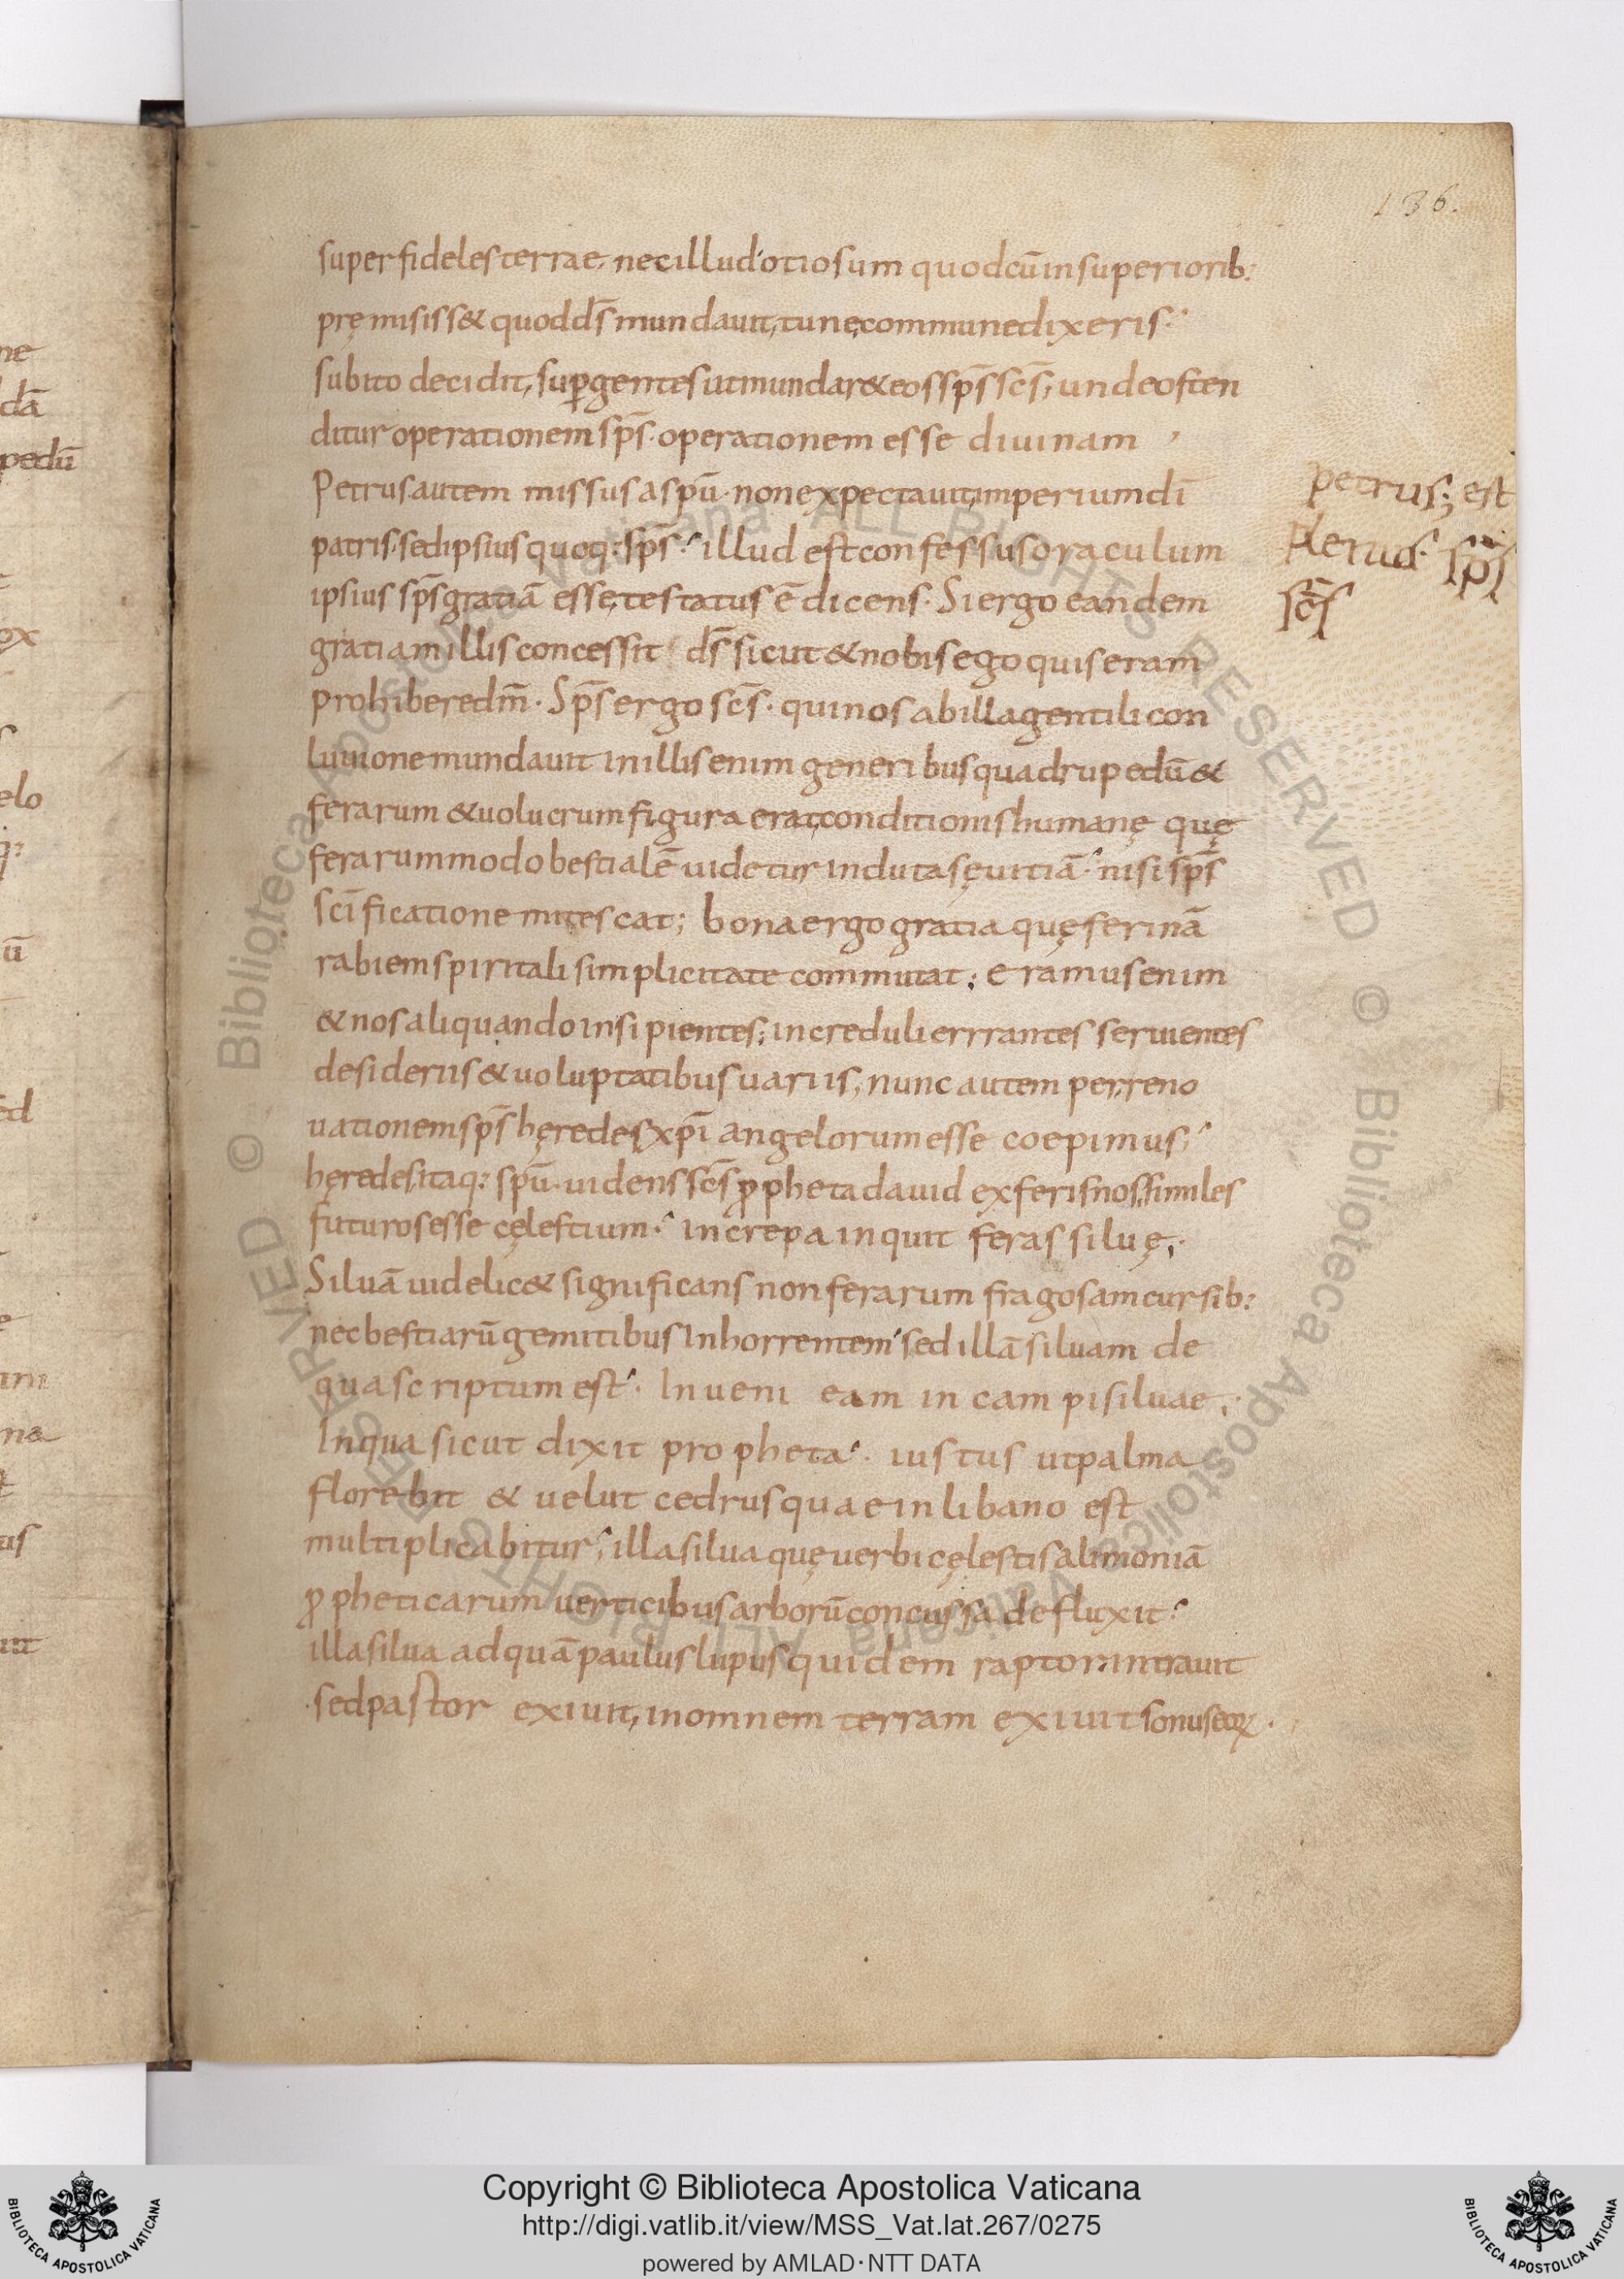 136.
super fideles terrae, nec illud otiosum quod cū in superiorib:
pręmisiss& quod ds̄ mundauit, tu ne commune dixeris.
subito decidit, suꝑ gentes ut mundar& eos sp̄s sc̄s; unde osten
ditur operationem sp̄s. operationem esse diuinam
Petrus autem missus a spū. non expectauit imperium dī
patris. sed ipsius quoq: sp̄s. illud est confessus oraculum
ipsius sp̄s gratiā esse, testatus ē dicens. Si ergo eandem
gratiam illis concessit ds̄ sicut & nobis ego quis eram
prohibere dm̄. Sp̄s ergo sc̄s. qui nos ab illa gentili con
luuione mundauit in illis enim generibus quadrupedū &
ferarum & uolucrum figura erat conditionis humanę quę
ferarum modo bestialē uidetur induta sęuitiā. nisi sp̄s
scīficatione mitescat; bona ergo gratia quę ferinā
rabiem spiritali simplicitate commutat; eramus enim
& nos aliquando insipientes; increduli errrantes seruientes
desideriis & uoluptatibus uariis, nunc autem per reno
uationem sp̄s hęredes xpī angelorum esse coepimus;
hęredes, itaq: spū. uidens sc̄s ꝓpheta dauid ex feris nos similes
futuros esse cęlestium. increpa inquit feras siluę;
Siluā uidelic& significans non ferarum fragosam cursib:
nec bestiarū gemitibus Inhorrentem sed illā siluam de
qua scriptum est. Inueni eam in campi siluae;
Inqua sicut dixit propheta. iustus ut palma
florebit & uelut cedrus quae in libano est
multiplicabitur; illa silua quę uerbi cęlestis alimoniā
ꝓpheticarum uerticibus arborū concussa defluxit.
illa silua ad quā paulus lupus quidem raptor intrauit
sed pastor exiuit, in omnem terram exiuit sonus eoꝝ.
petrus; est
plenus. sp̄s
sc̄s
Copyright © Biblioteca Apostolica Vaticana
http://digi.vatlib.it/view/MSS_Vat.lat.267/0275
powered by AMLAD · NTT DATA
BIBLIOTECA APOSTOLICA VATICANA
BIBLIOTECA APOSTOLICA VATICANA